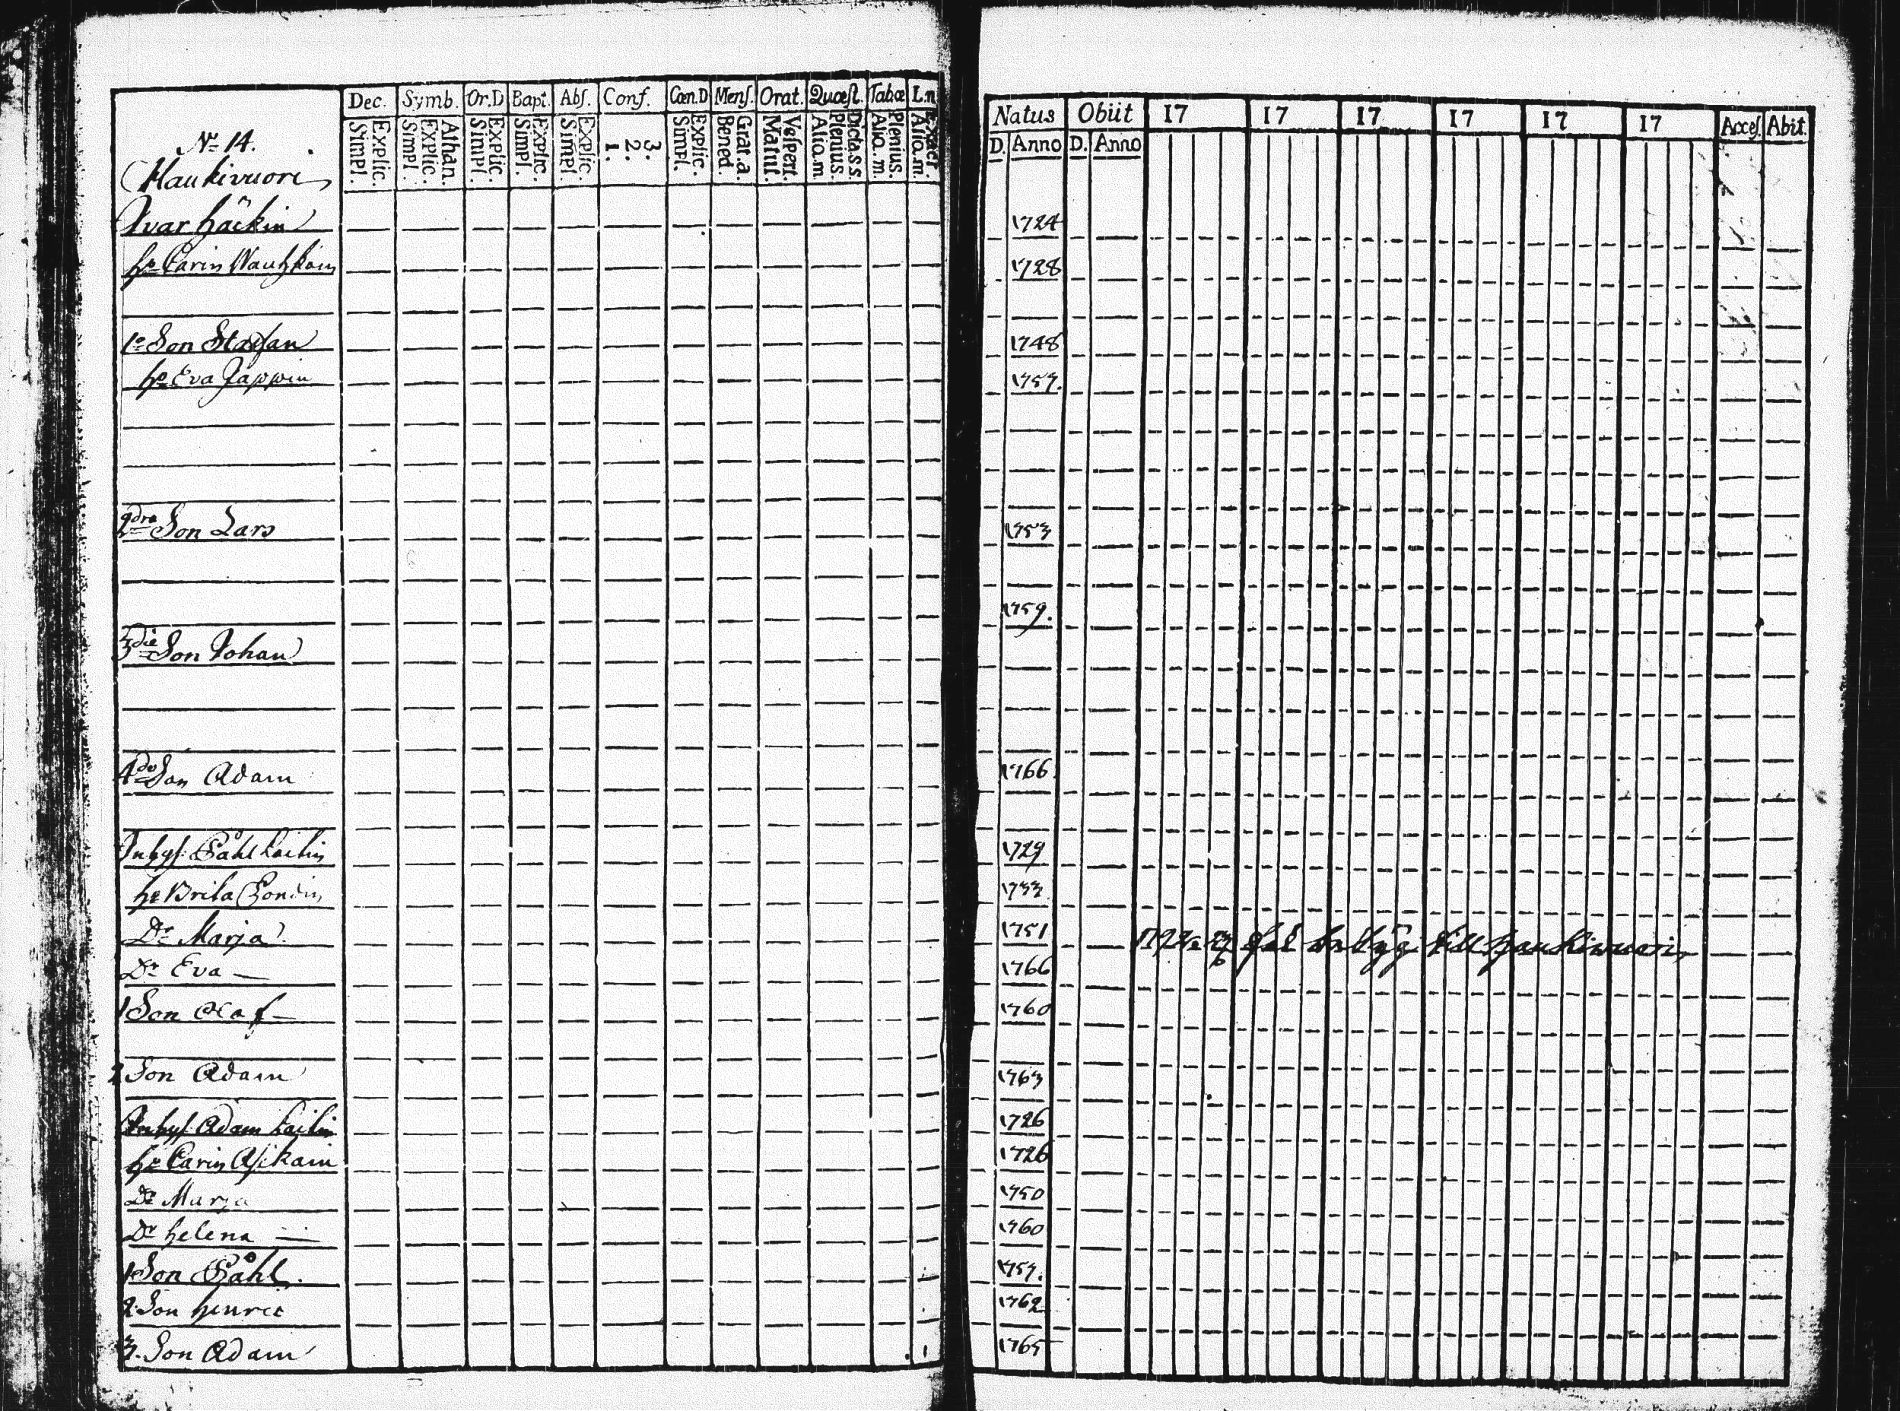 Dec. Symb. Or.D Bapt. Abs. Conf. Cœn.D Mens. Orat. Quæst. Tabœ L.n.
Explic. Simpl. Athan. Explic. Simpl. Explic. Simpl. Explic. Simpl. Explic. Simpl. 3. 2. 1. Explic. Simpl. Grat.a. Bened. Vespert. Matut. Dicta.s.s. Plenius. Alio.m. Plenius. Alio.m. Alio.m.
Natus Obiit 17 17 17 17 17 17 Acces. Abit.
D. Anno D. Anno
No 14.
Haukivuori
Ivar Häckin 1724
hu Carin 1728
1e Son Staffan 1748
hu Eva 1757.
2dre Son Lars 1753
1759.
3die Son Johan
4de Son Adam 1766.
Inhys. Påhl 1729
hu Brita 1733
Dr Marja 1751
till Haukiwuori
Dr Eva 1766
1 Son Olof 1760
2 Son Adam 1763
Inhys Adam 1726
hu Carin Asikain 1726
Dr Marja 1750
Dr Helena 1760
1 Son Påhl. 1757.
2. Son Henric 1762
3. Son Adam 1765